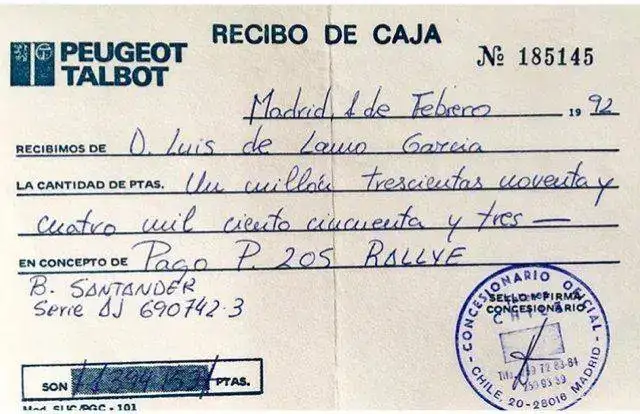 PEUGEOT
TALBOT
RECIBO DE CAJA
Nº 185145
Madrid, 1 de Febrero 1992
RECIBIMOS DE D. Luis de Lamo Garcia
LA CANTIDAD DE PTAS. Un millón trescientas noventa y
cuatro mil ciento cincuenta y tres —
EN CONCEPTO DE Pago P. 205 RALLYE
B. SANTANDER
Serie AJ 690742-3
CONCESIONARIO OFICIAL
SELLO Y FIRMA
CONCESIONARIO
CHILE, 20-28016 MADRID
SON 1.394.153 PTAS.
Mod. SUC/PGC - 101